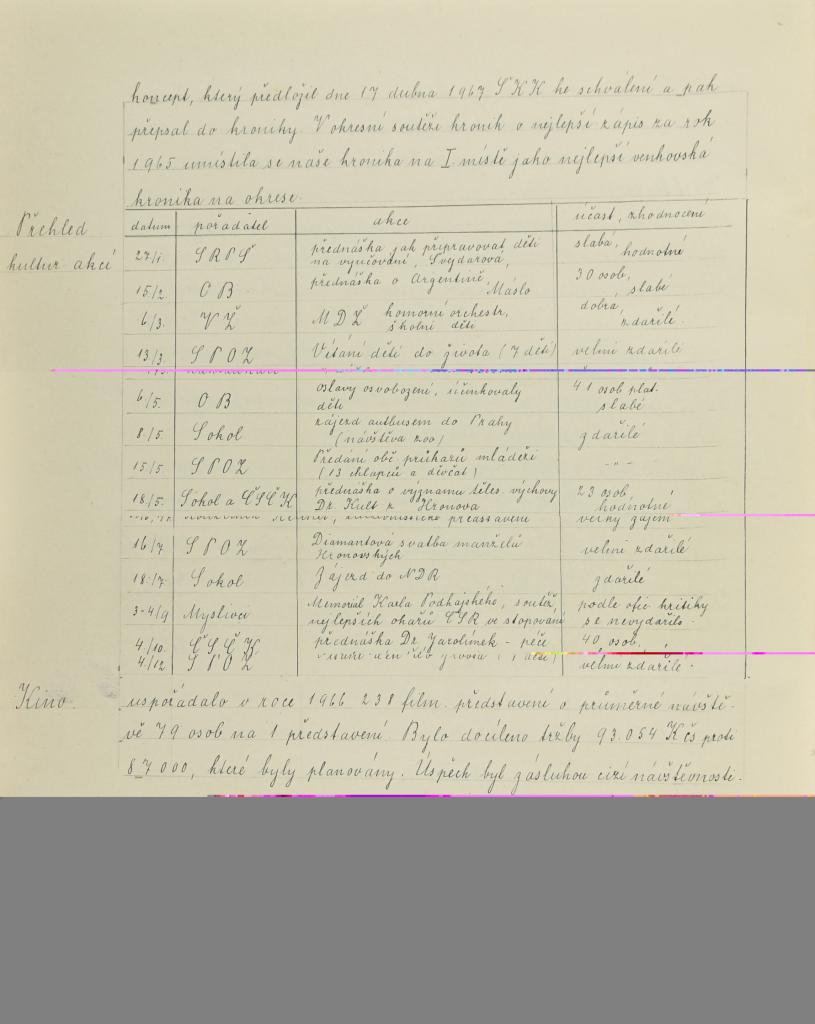 koncept, který předložil dne 17 dubna 1967 ŠKK ke schválení a pak
přepsal do kroniky. V okresní soutěži kronik o nejlepší zápis za rok
1965 umístila se naše kronika na I. místě jako nejlepší venkovská
kronika na okrese.
Přehled
kultur. akcí
datum pořadatel akce účast, zhodnocení
27/1. SRPŠ přednáška jak připravovat děti slabá, hodnotné
na vyučování, Švejdarová,
15/2. OB přednáška o Argentině, Máslo 30 osob, slabé
6/3. VŽ MDŽ komorní orchestr, dobrá,
školní děti zdařilé.
13/3 SPOZ Vítání dětí do života (7 dětí) velmi zdařilé
6/5. OB oslavy osvobození, účinkovaly 41 osob plat.
děti slabé
8/5. Sokol zájezd autbusem do Prahy zdařilé
(návštěva zoo)
15/5. SPOZ Předání obč. průkazů mládeži -"-
(13 chlapců a děvčat)
18/5. Sokol a ČSČK přednáška o významu těles. výchovy 23 osob
Dr. Kult z Hronova hodnotné
představení velký zájem
16/7 SPOZ Diamantová svatba manželů velmi zdařilé
Hronovských
18/7. Sokol Zájezd do NDR zdařilé
3-4/9 Myslivci Memoriál Karla Podhajského, soutěž, podle ofic. kritiky
nejlepších ohařů ČSR ve stopování se nevydařilo.
4/10. ČSČK přednáška Dr. Jarolímek - péče 40 osob,
4/12. SPOZ velmi zdařilé.
Kino.
uspořádalo v roce 1966 238 film. představení o průměrné návště-
vě 79 osob na 1 představení. Bylo docíleno tržby 93.054 Kčs proti
87000, které byly planovány. Úspěch byl zásluhou cizí návštěvnosti.